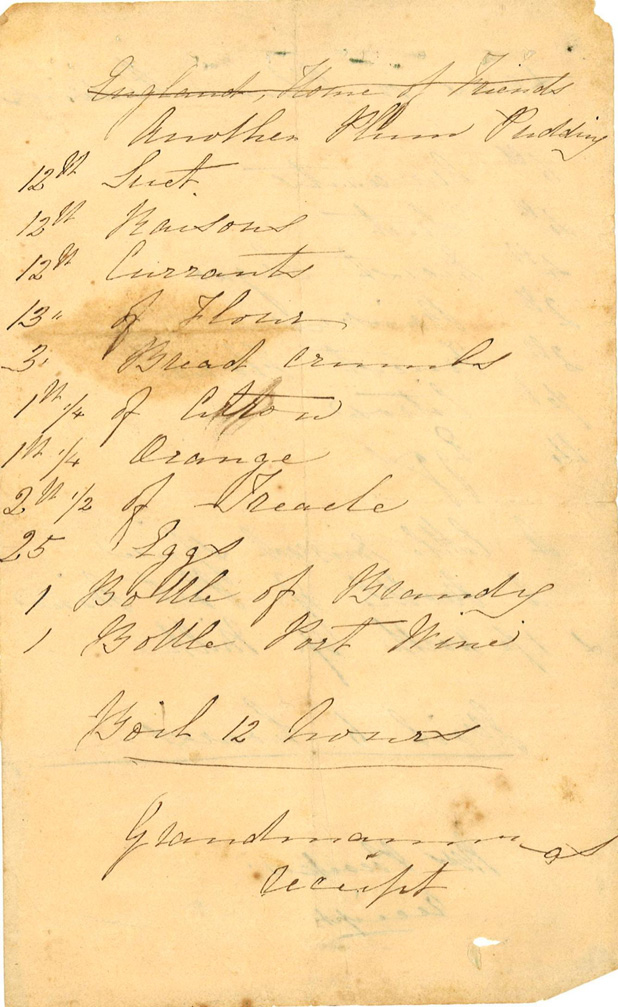 England, Home of Friends
Another Plum Pudding
12 lb Suet
12 lb Raisons
12 lb Currants
13 " of Flour
3 " Bread Crumbs
1 lb 1/4 of Citron
1 lb 1/4 Orange
2 lb 1/2 of Treacle
25 Eggs
1 Bottle of Brandy
1 Bottle Port Wine
Boil 12 hours
Grandmamma's
receipt